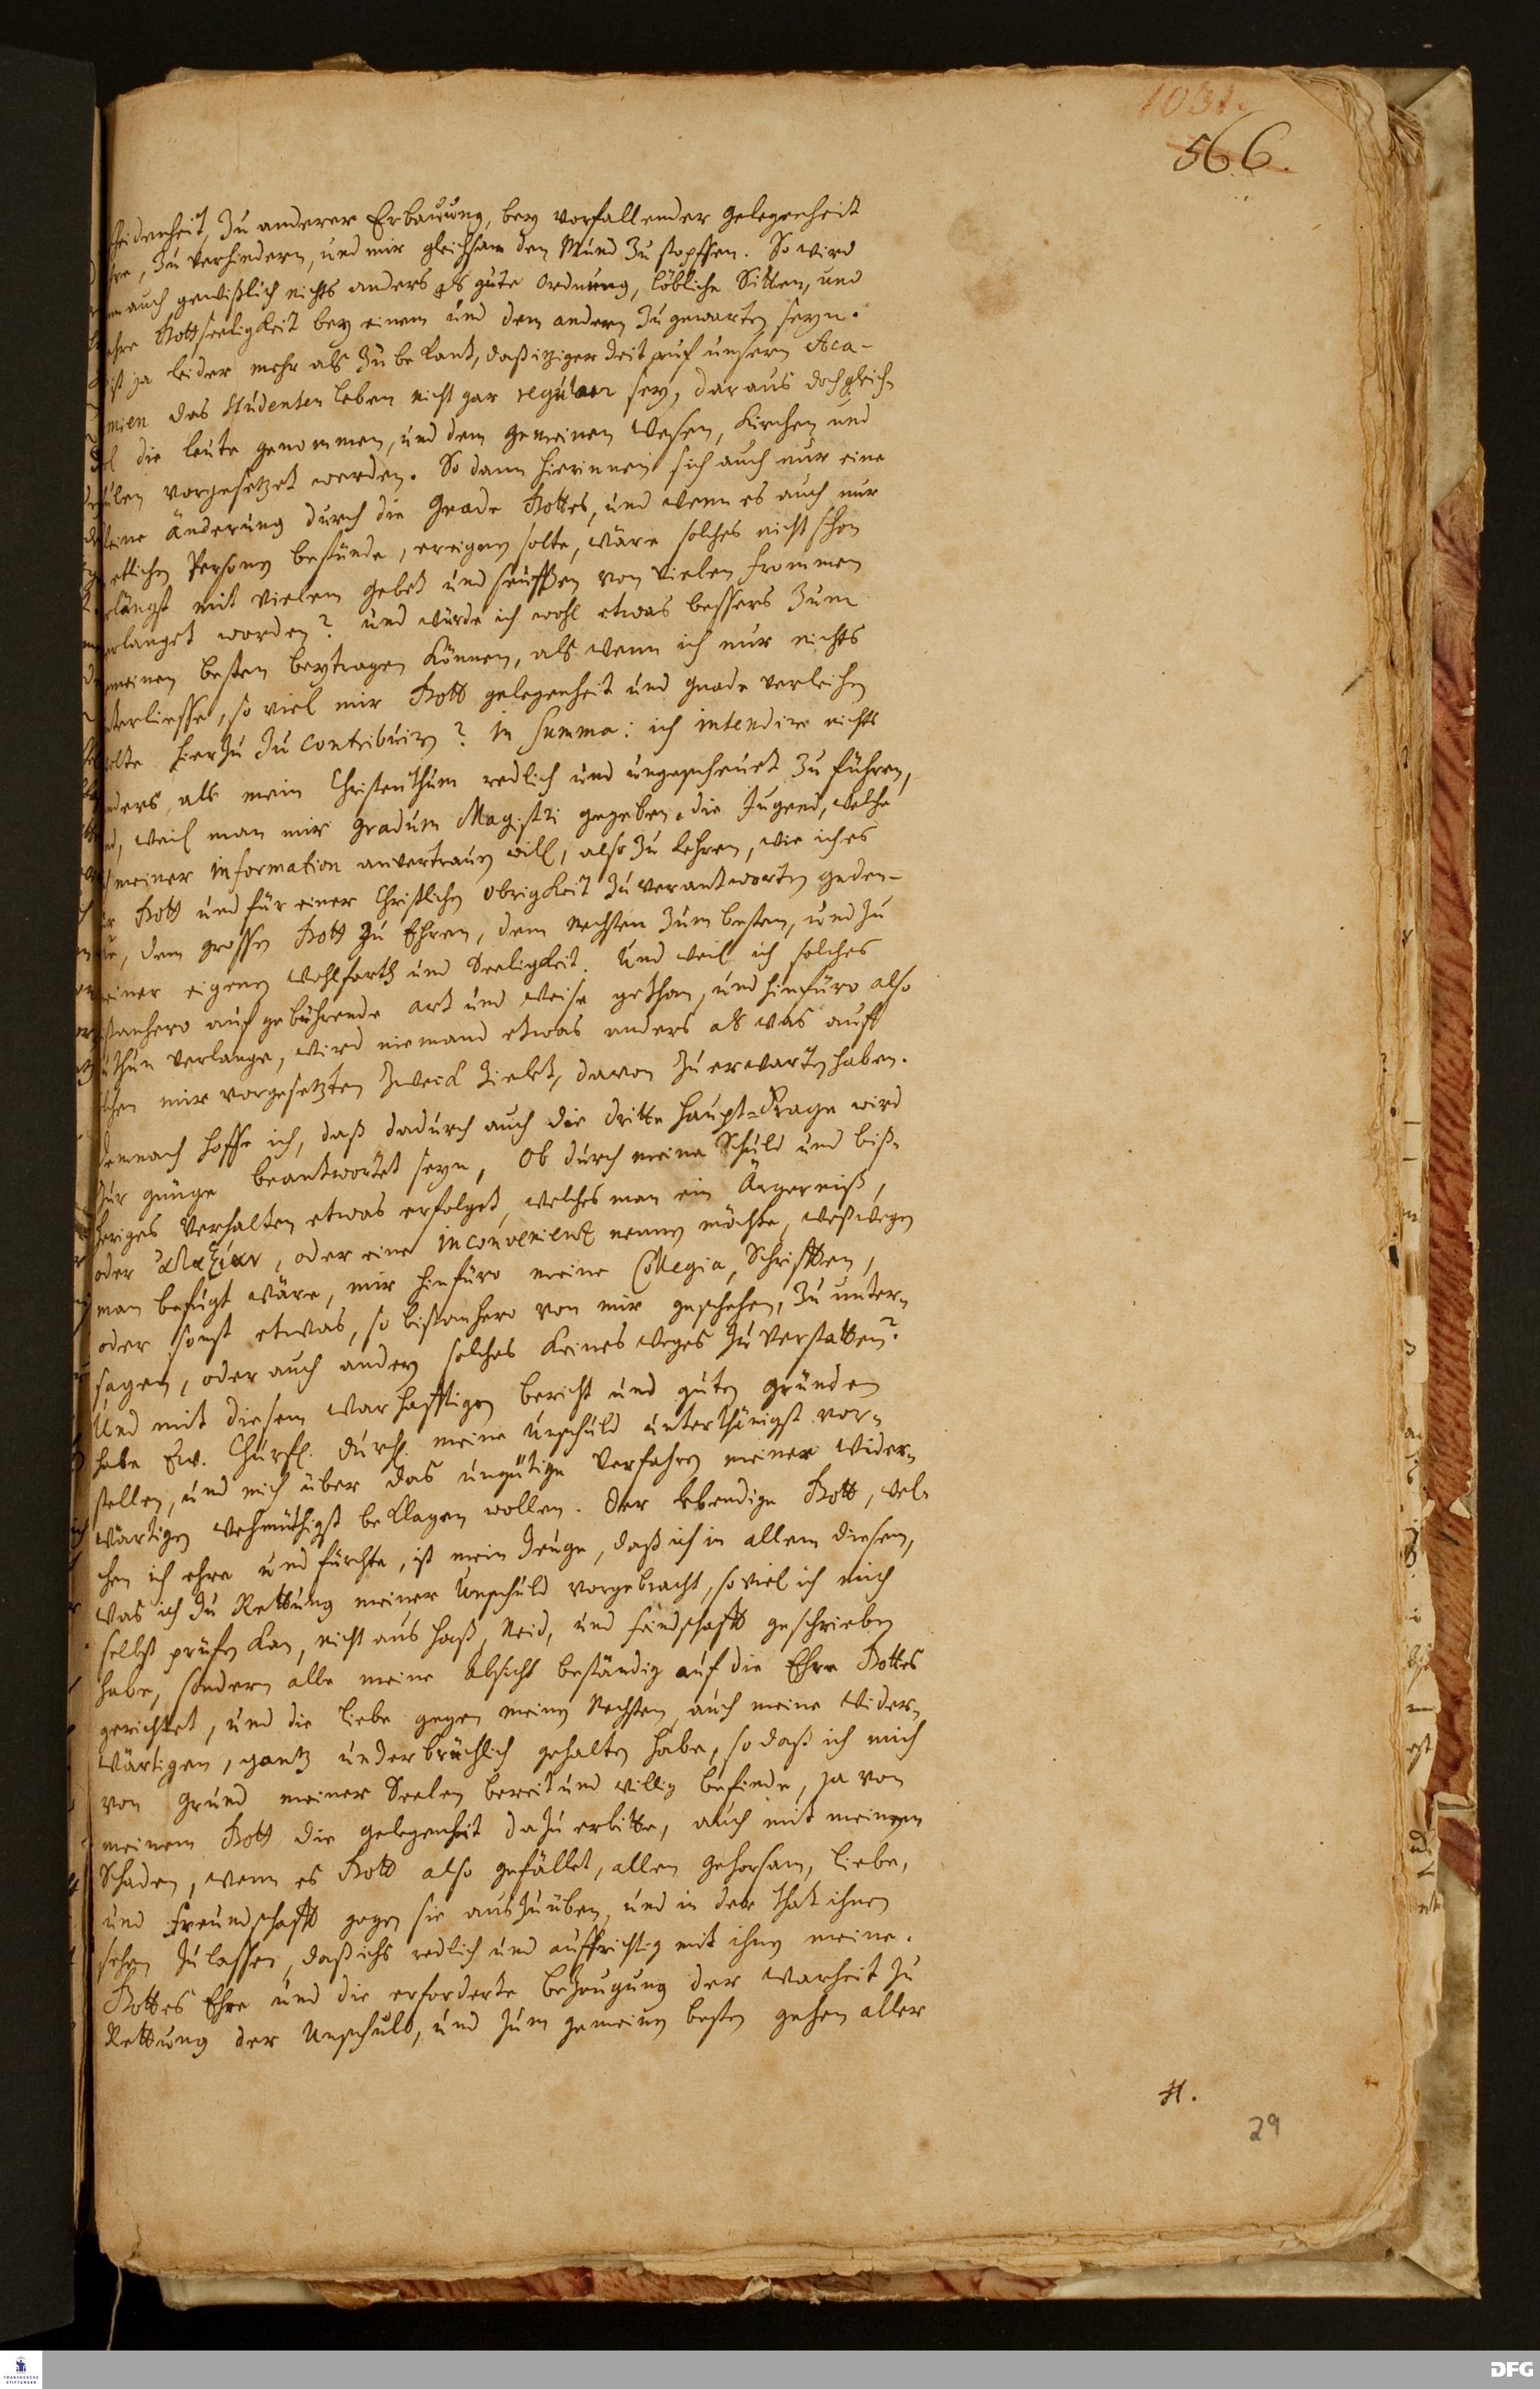 1031.
566.
scheidenheit, zu anderer Erbauung, bey vorfallender gelegenheit
zu verhindern, und mir gleichsam den Mund zu stopffen. So wird
auch gewißlich nichts anders als gute Ordnung, löbliche Sitten, und
Gottseeligkeit bey einem und dem andern zugewarten seyn.
ist ja leider mehr als zu bekant, daß itziger Zeit auf unsern Aca-
mien das Studenten leben nicht gar regulair sey, daraus doch gleich
die leute genommen, und dem gemeinen Wesen, Kirchen und
Schulen vorgesetzet werden. So dann hierinnen sich auch nur eine
kleine änderung durch die Gnade Gottes, und wenn es auch nur
etlichen Personen bestünde, ereignen solte, wäre solches nicht schon
längst mit vielem gebet und seufftzen von vielen frommen
verlanget worden? und würde ich wohl etwas bessers zum
gemeinen besten beytragen können, als wenn ich nur nichts
unterliesse, so viel mir Gott gelegenheit und gnade verleihen
wolte hierzu zu contribuiren? in Summa: ich intendire nichts
anders, als mein Christenthum redlich und ungescheuet zu führen,
und, weil man mir gradum Magistri gegeben, die Jugend, welche
meiner information anvertrauen will, also zu lehren, wie ich es
für Gott und für einer Christlichen Obrigkeit zuverantworten geden-
cke, dem grossen Gott zu Ehren, dem nechsten zum besten, und zu
meiner eigenen wohlfarth und Seeligkeit. Und weil ich solches
bißanhero auf gebührende art und weise gethan, und hinfüro also
zuthun verlange, wird niemand etwas anders als was auff
solchen mir vorgesetzten Zweck zielet, davon zuerwarten haben.
Demnach hoffe ich, daß dadurch auch die dritte Haupt-Frage wird
zur gnüge beantwortet seyn, Ob durch meine Schuld und biß-
heriges Verhalten etwas erfolget, welches man ein Ärgerniß,
oder ἀταξίαν, oder eine inconvenientz nennen möchte, weßwegen
man befugt wäre, mir hinfüro meine Collegia, Schrifften,
oder sonst etwas, so bißanhero von mir geschehen, zu unter-
sagen, oder auch andern solches keines weges zu verstatten?
Und mit diesem warhafftigen bericht und guten gründen
habe Ew. Churfl. Durchl. meine unschuld unterthänigst vor-
stellen, und mich über das ungütige Verfahren meiner wider-
wärtigen wehmüthigst beklagen wollen. Der lebendige Gott, wel-
chen ich ehre und fürchte, ist mein Zeuge, daß ich in allem diesem,
was ich zu Rettung meiner Unschuld vorgebracht, so viel ich mich
selbst prüfen kan, nicht aus haß, Neid, und feindschafft geschrieben
habe, sondern alle meine absicht beständig auf die Ehre Gottes
gerichtet, und die liebe gegen meinen Nechsten, auch meine wider-
wärtigen, gantz underbrüchlich gehalten habe, so daß ich mich
von grund meiner Seelen bereit und willig befinde, ja von
meinem Gott die gelegenheit dazu erbitte, auch mit meinem
Schaden, wenn es Gott also gefället, allen gehorsam, liebe,
und freundschafft gegen sie auszuüben, und in der that ihnen
sehen zulassen, daß ichs redlich und auffrichtig mit ihnen meine.
Gottes Ehre und die erforderte bezeugung der warheit zu
Rettung der Unschuld, und zum gemeinen besten gehen aller
H.
29
FRANCKESCHE
STIFTUNGEN
DFG